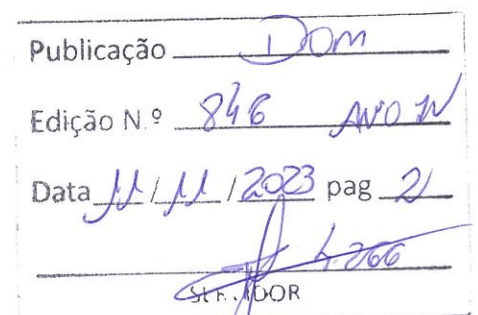 Publicação DOM
Edição N.º 846 ANO IV
Data 11/11/2023 pag 2
4.266
SERVIDOR